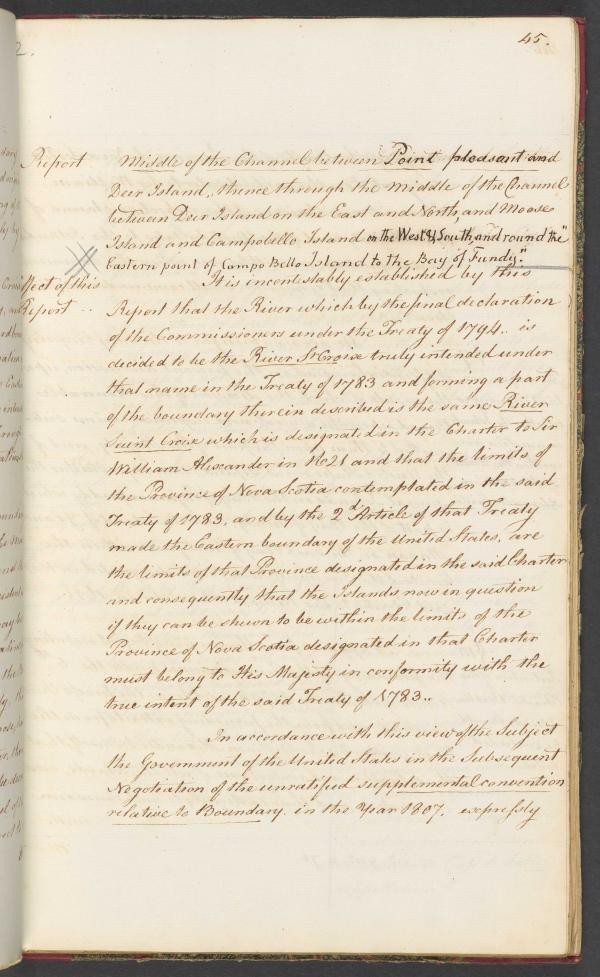 45.
2.
Report Middle of the Channel between Point pleasant and
Deer Island, thence through the middle of the Channel
between Deer Island on the East and North, and Moose
Island and Campobello Island on the West & South, and round the"
Eastern point of Campo Bello Island to the Bay of Fundy."
Effect of this It is incontestably established by this
Report .. Report that the River which by the final declaration
of the Commissioners under the Treaty of 1794.. is
decided to be the River St Croix truly intended under
that name in the Treaty of 1783 and forming a part
of the boundary therein described is the same River
Saint Croix which is designated in the Charter to Sir
William Alexander in 1621 and that the limits of
the Province of Nova Scotia contemplated in the said
Treaty of 1783, and by the 2d Article of that Treaty
made the Eastern boundary of the United States, are
the limits of that Province designated in the said Charter
and consequently that the Islands now in question
if they can be shewn to be within the limits of the
Province of Nova Scotia designated in that Charter
must belong to His Majesty in conformity with the
true intent of the said Treaty of 1783..
In accordance with this view of the Subject
the Government of the United States in the Subsequent
Negotiation of the unratified supplemental convention
relative to Boundary. in the Year 1807. expressly